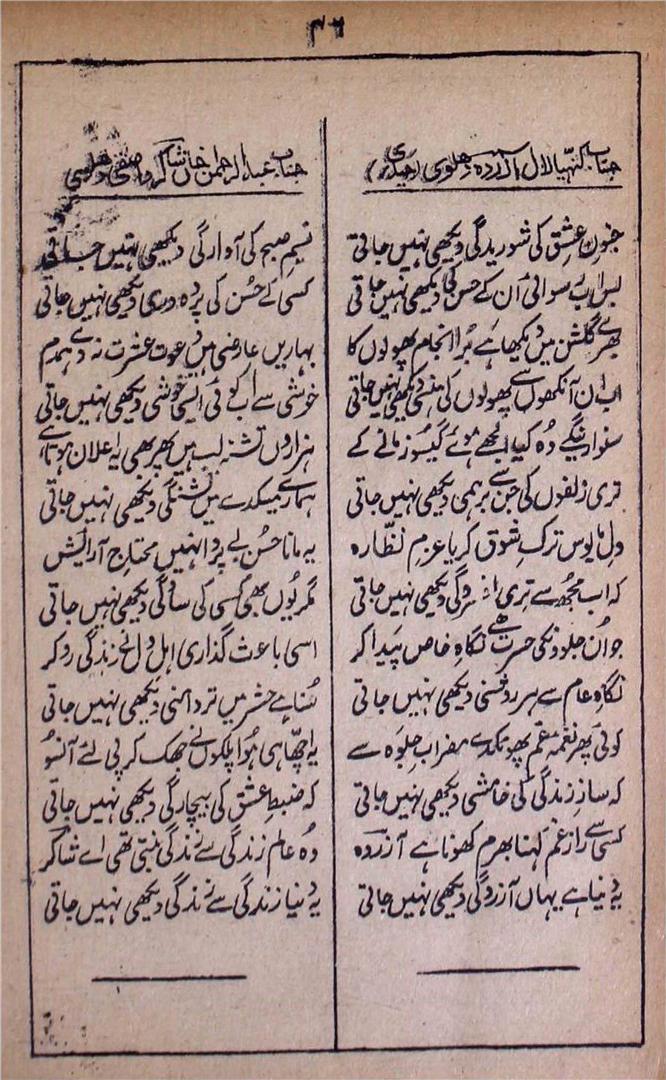 ۴۶
جناب کنہیا لال آزردہ دہلوی (حیدری)
جنونِ عشق کی شوریدگی دیکھی نہیں جاتی
بس اب رسوائی اُن کے حسن کی دیکھی نہیں جاتی
بھرے گلشن میں دیکھا ہے بُرا انجام پھولوں کا
اب ان آنکھوں سے پھولوں کی ہنسی دیکھی نہیں جاتی
سنواریںگے وُہ کیا الجھے ہوئے گیسو زمانے کے
تری زلفوں کی جن سے برہمی دیکھی نہیں جاتی
دلِ مایوس ترکِ شوق کر یا عزمِ نظّارہ
کہ اب مجھ سے تری افسردگی دیکھی نہیں جاتی
جو اُن جلووں کی حسرت ہے نگاہِ خاص پیدا کر
نگاہِ عام سے ہر روشنی دیکھی نہیں جاتی
کوئی پھر نغمۂ غم پھونکدے مضرابِ جلوَہ سے
کہ سازِ زندگی کی خامشی دیکھی نہیں جاتی
کسی سے رازِ غم کہنا بھرم کھونا ہے آزردہ
یہ دُنیا ہے یہاں آزردگی دیکھی نہیں جاتی
جناب عبدالرحمٰن خاں شاکر دہلوی
نسیمِ صبح کی آوارگی دیکھی نہیں جاتی
کسی کے حُسن کی پردہ دری دیکھی نہیں جاتی
بہاریں عارضی ہیں دعوتِ عشرت نہ دے ہمدم
خوشی سے اب کوئی ایسی خوشی دیکھی نہیں جاتی
ہزاروں تشنہ لب ہیں پھر بھی یہ اعلان ہوتا ہے
ہمارے میکدے میں تشنگی دیکھی نہیں جاتی
یہ مانا حُسنِ بے پروا نہیں محتاجِ آرائش
مگر یُوں بھی کسی کی سادگی دیکھی نہیں جاتی
اسی باعث گذاری اہلِ دل نے زندگی رو کر
سُنا ہے حشر میں تر دامنی دیکھی نہیں جاتی
یہ اچھّا ہی ہُوا پلکوں نے جھک کر پی لئے آنسو
کہ ضبطِ عشق کی بیچارگی دیکھی نہیں جاتی
وُہ عالم زندگی سے زندگی بنتی تھی اے شاکر
یہ دُنیا زندگی سے زندگی دیکھی نہیں جاتی